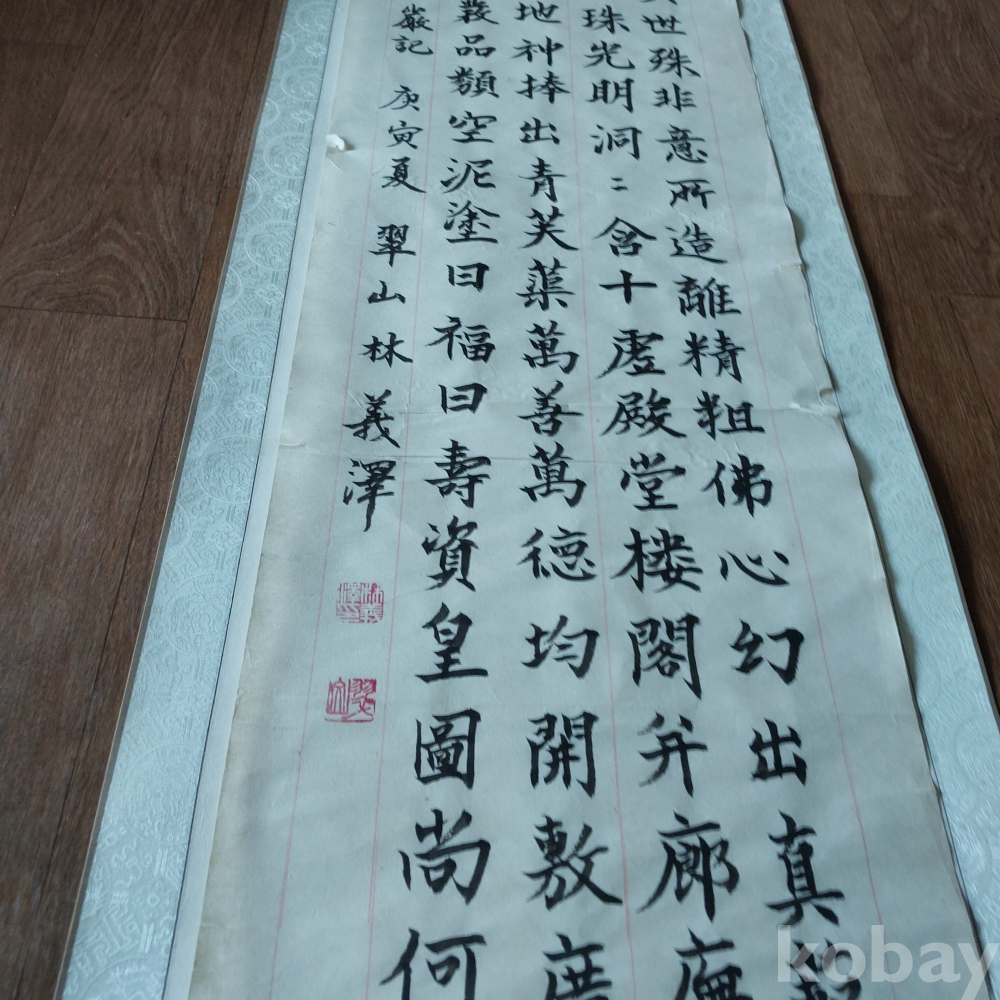 世殊非意所造離精粗佛心幻出真
珠光明洞〻含十虛殿堂楼閣并廊廡
地神捧出青芙蕖萬善萬德均開敷度
叢品類空泥塗曰福曰壽資皇圖尚何
嚴記 庚寅夏 翠山林義澤
kobay